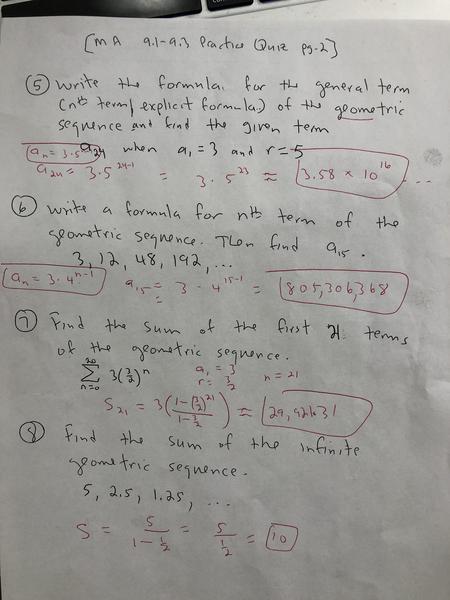 [MA 9.1-9.3 Practice Quiz pg.2]
⑤ Write the formula for the general term
(nth term/explicit formula) of the geometric
sequence and find the given term
a₂₄ when a₁ = 3 and r = 5
aₙ = 3·5
a₂₄ = 3·5²⁴⁻¹ = 3·5²³ ≈ 3.58 × 10¹⁶ ...
⑥ Write a formula for nth term of the
geometric sequence. Then find a₁₅.
3, 12, 48, 192, ...
aₙ = 3·4ⁿ⁻¹ a₁₅ = 3·4¹⁵⁻¹ = 805,306,368
⑦ Find the sum of the first 21 terms
of the geometric sequence.
20 Σ n=0 3(3/2)ⁿ a₁ = 3 r = 3/2 n = 21
S₂₁ = 3((1-(3/2)²¹)/(1-3/2)) ≈ 29,921.31
⑧ Find the sum of the infinite
geometric sequence.
5, 2.5, 1.25, ...
S = 5/(1-1/2) = 5/(1/2) = 10